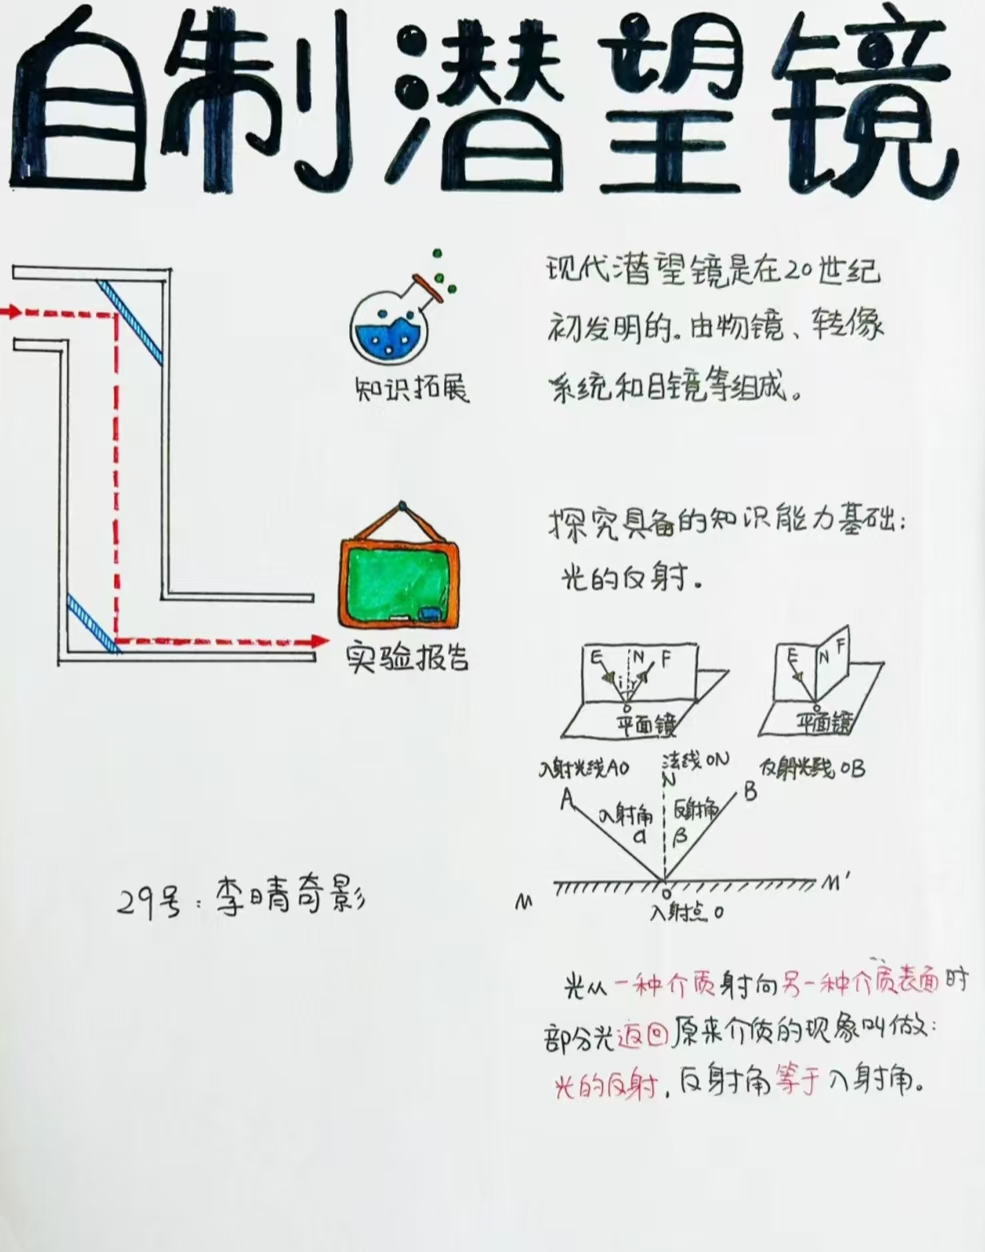 自制潜望镜
知识拓展
现代潜望镜是在20世纪
初发明的。由物镜、转像
系统和目镜等组成。
实验报告
探究具备的知识能力基础:
光的反射。
E N F
i r
O
平面镜
E N F
O
平面镜
入射光线AO 法线ON 反射光线OB
N
A B
入射角 反射角
α β
M M'
O
入射点O
29号:李晴奇影
光从一种介质射向另一种介质表面时
部分光返回原来介质的现象叫做:
光的反射,反射角等于入射角。